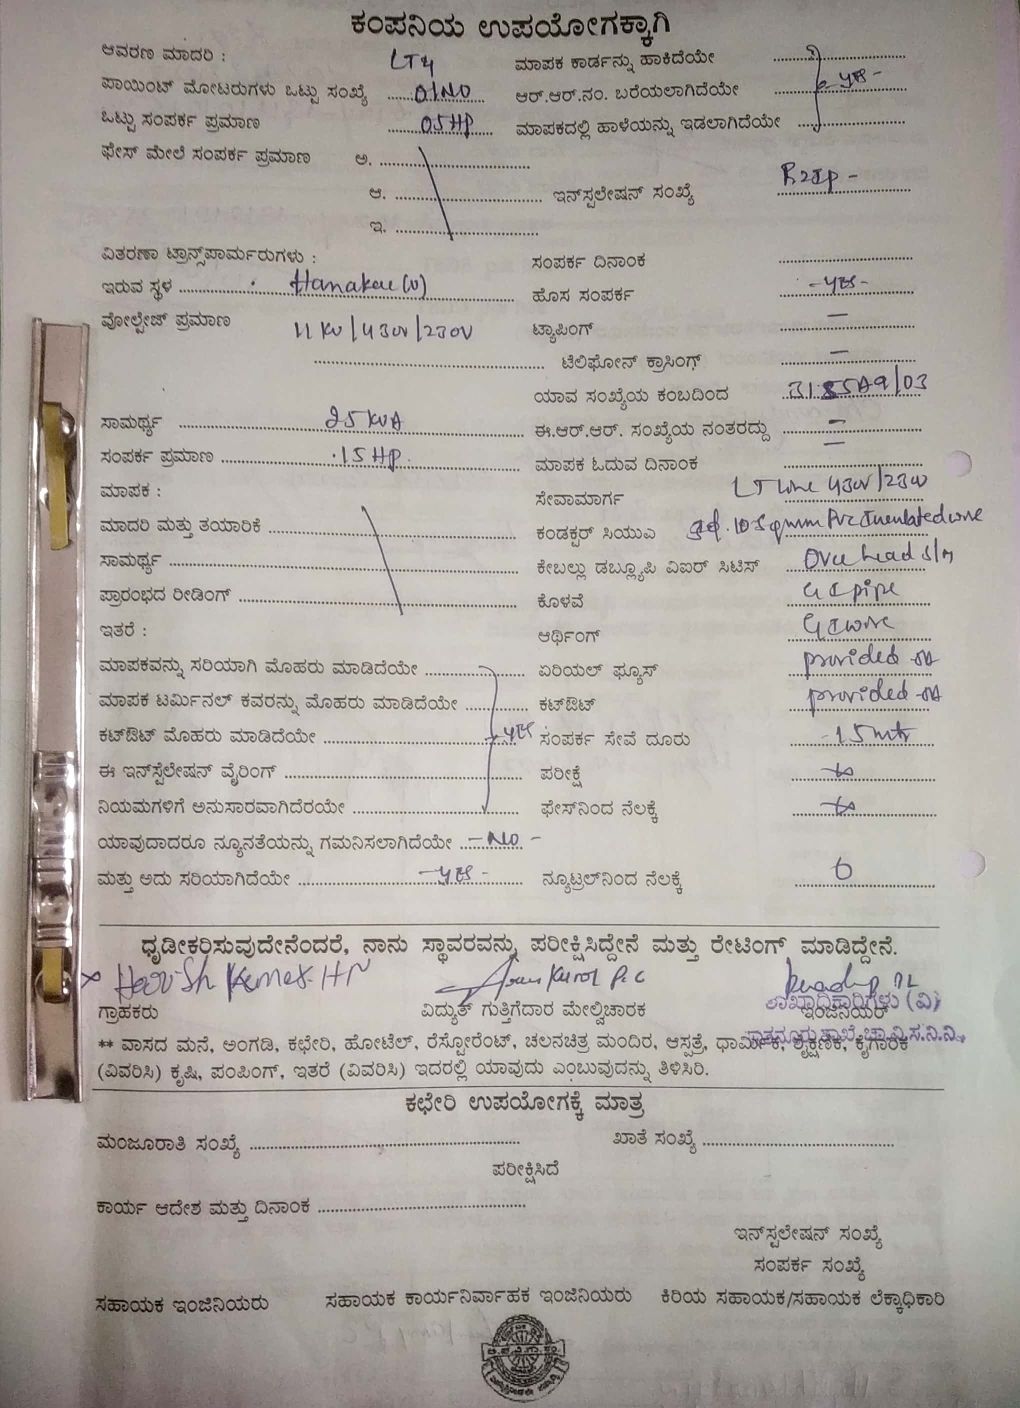 ಕಂಪನಿಯ ಉಪಯೋಗಕ್ಕಾಗಿ
ಆವರಣ ಮಾದರಿ : LT4 ಮಾಪಕ ಕಾರ್ಡನ್ನು ಹಾಕಿದೆಯೇ
ಪಾಯಿಂಟ್ ಮೋಟರುಗಳು ಒಟ್ಟು ಸಂಖ್ಯೆ 01NO ಆರ್.ಆರ್.ನಂ. ಬರೆಯಲಾಗಿದೆಯೇ - yes -
ಒಟ್ಟು ಸಂಪರ್ಕ ಪ್ರಮಾಣ 05HP ಮಾಪಕದಲ್ಲಿ ಹಾಳೆಯನ್ನು ಇಡಲಾಗಿದೆಯೇ
ಫೇಸ್ ಮೇಲೆ ಸಂಪರ್ಕ ಪ್ರಮಾಣ ಅ.
ಆ. ಇನ್‌ಸ್ಪಲೇಷನ್ ಸಂಖ್ಯೆ
ಇ.
ವಿತರಣಾ ಟ್ರಾನ್ಸ್‌ಪಾರ್ಮರುಗಳು : ಸಂಪರ್ಕ ದಿನಾಂಕ
ಇರುವ ಸ್ಥಳ ಹೊಸ ಸಂಪರ್ಕ - yes -
ವೋಲ್ಟೇಜ್ ಪ್ರಮಾಣ 11KV/430V/230V ಟ್ಯಾಪಿಂಗ್ —
ಟೆಲಿಫೋನ್ ಕ್ರಾಸಿಂಗ್ —
ಯಾವ ಸಂಖ್ಯೆಯ ಕಂಬದಿಂದ
ಸಾಮರ್ಥ್ಯ 25 KVA ಈ.ಆರ್.ಆರ್. ಸಂಖ್ಯೆಯ ನಂತರದ್ದು —
ಸಂಪರ್ಕ ಪ್ರಮಾಣ .15HP. ಮಾಪಕ ಓದುವ ದಿನಾಂಕ —
ಮಾಪಕ : ಸೇವಾಮಾರ್ಗ LT line 430V/230V
ಮಾದರಿ ಮತ್ತು ತಯಾರಿಕೆ ಕಂಡಕ್ಟರ್ ಸಿಯುಎ
ಸಾಮರ್ಥ್ಯ ಕೇಬಲ್ಲು ಡಬ್ಲ್ಯೂಪಿ ವಿಐರ್ ಸಿಟಿಸ್ Over head
ಪ್ರಾರಂಭದ ರೀಡಿಂಗ್ ಕೊಳವೆ GI pipe
ಇತರೆ : ಆರ್ಥಿಂಗ್ GI wire
ಮಾಪಕವನ್ನು ಸರಿಯಾಗಿ ಮೊಹರು ಮಾಡಿದೆಯೇ ಏರಿಯಲ್ ಫ್ಯೂಸ್ provided
ಮಾಪಕ ಟರ್ಮಿನಲ್ ಕವರನ್ನು ಮೊಹರು ಮಾಡಿದೆಯೇ ಕಟ್‌ಔಟ್ provided
ಕಟ್‌ಔಟ್ ಮೊಹರು ಮಾಡಿದೆಯೇ - yes ಸಂಪರ್ಕ ಸೇವೆ ದೂರು - 15 mtr
ಈ ಇನ್‌ಸ್ಪೆಲೇಷನ್ ವೈರಿಂಗ್ ಪರೀಕ್ಷೆ
ನಿಯಮಗಳಿಗೆ ಅನುಸಾರವಾಗಿದೆರಯೇ ಫೇಸ್‌ನಿಂದ ನೆಲಕ್ಕೆ
ಯಾವುದಾದರೂ ನ್ಯೂನತೆಯನ್ನು ಗಮನಿಸಲಾಗಿದೆಯೇ - NO -
ಮತ್ತು ಅದು ಸರಿಯಾಗಿದೆಯೇ - yes - ನ್ಯೂಟ್ರಲ್‌ನಿಂದ ನೆಲಕ್ಕೆ 0
ಧೃಡೀಕರಿಸುವುದೇನೆಂದರೆ, ನಾನು ಸ್ಥಾವರವನ್ನು ಪರೀಕ್ಷಿಸಿದ್ದೇನೆ ಮತ್ತು ರೇಟಿಂಗ್ ಮಾಡಿದ್ದೇನೆ.
ಗ್ರಾಹಕರು ವಿದ್ಯುತ್ ಗುತ್ತಿಗೆದಾರ ಮೇಲ್ವಿಚಾರಕ ಇಂಜಿನಿಯರ್
ಶಾಖಾಧಿಕಾರಿಗಳು (ವಿ)
** ವಾಸದ ಮನೆ, ಅಂಗಡಿ, ಕಛೇರಿ, ಹೋಟೆಲ್, ರೆಸ್ಟೋರೆಂಟ್, ಚಲನಚಿತ್ರ ಮಂದಿರ, ಆಸ್ಪತ್ರೆ, ಧಾರ್ಮಿಕ, ಶೈಕ್ಷಣಿಕ, ಕೈಗಾರಿಕೆ
(ವಿವರಿಸಿ) ಕೃಷಿ, ಪಂಪಿಂಗ್, ಇತರೆ (ವಿವರಿಸಿ) ಇದರಲ್ಲಿ ಯಾವುದು ಎಂಬುವುದನ್ನು ತಿಳಿಸಿರಿ.
ಕಛೇರಿ ಉಪಯೋಗಕ್ಕೆ ಮಾತ್ರ
ಮಂಜೂರಾತಿ ಸಂಖ್ಯೆ ಖಾತೆ ಸಂಖ್ಯೆ
ಪರೀಕ್ಷಿಸಿದೆ
ಕಾರ್ಯ ಆದೇಶ ಮತ್ತು ದಿನಾಂಕ
ಇನ್‌ಸ್ಪಲೇಷನ್ ಸಂಖ್ಯೆ
ಸಂಪರ್ಕ ಸಂಖ್ಯೆ
ಸಹಾಯಕ ಇಂಜಿನಿಯರು ಸಹಾಯಕ ಕಾರ್ಯನಿರ್ವಾಹಕ ಇಂಜಿನಿಯರು ಕಿರಿಯ ಸಹಾಯಕ/ಸಹಾಯಕ ಲೆಕ್ಕಾಧಿಕಾರಿ